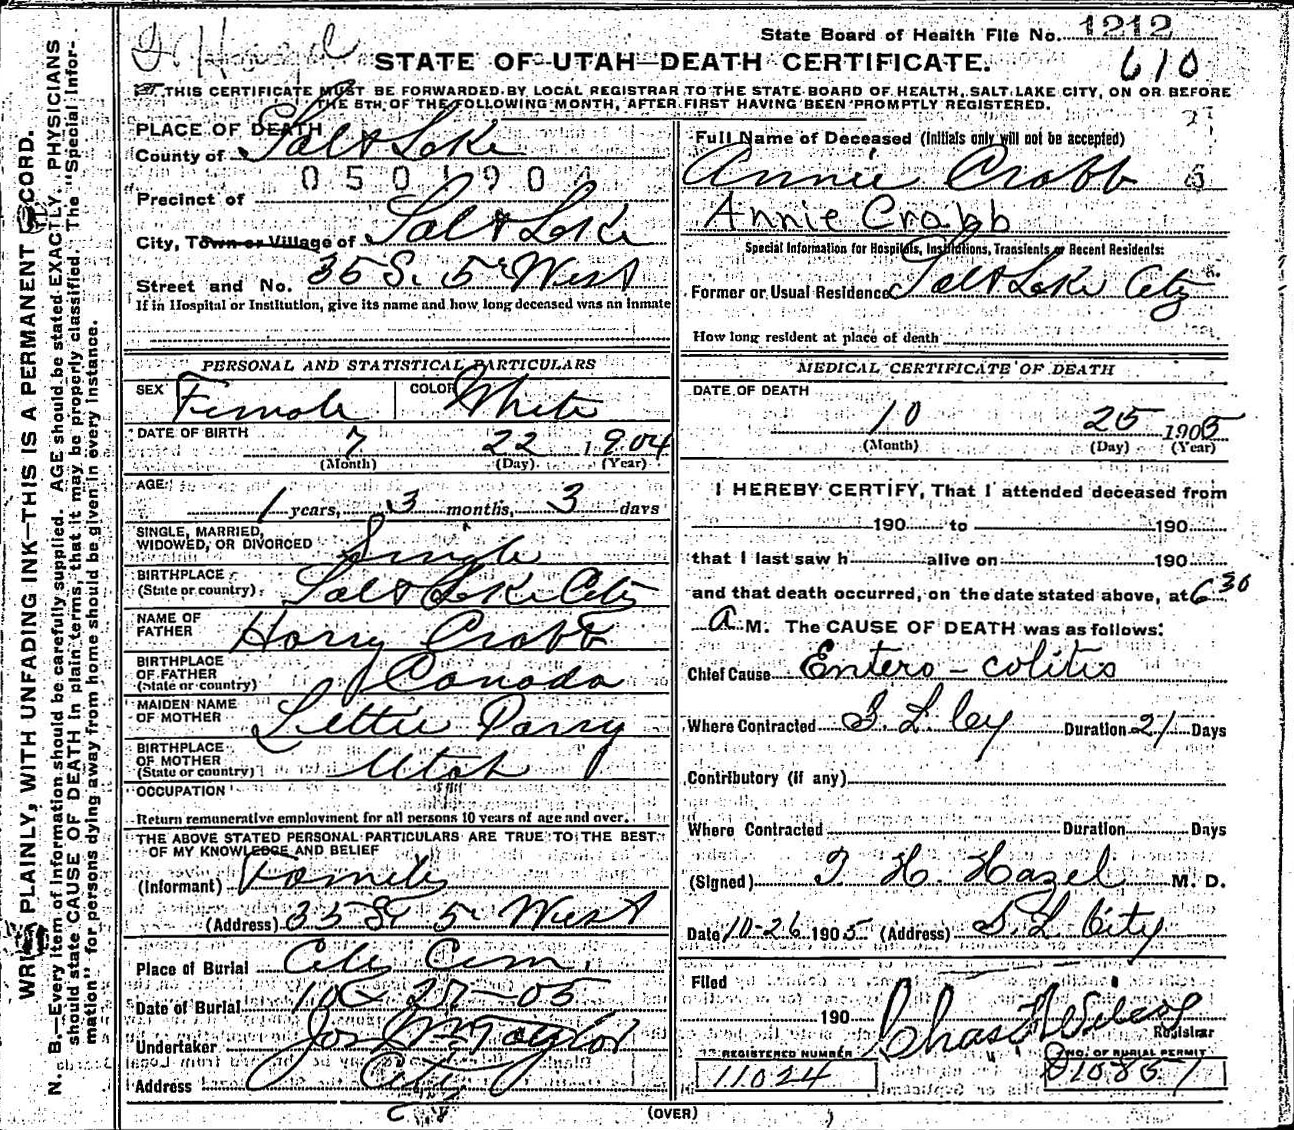 State Board of Health File No. 1212
610
STATE OF UTAH—DEATH CERTIFICATE.
THIS CERTIFICATE MUST BE FORWARDED BY LOCAL REGISTRAR TO THE STATE BOARD OF HEALTH, SALT LAKE CITY, ON OR BEFORE
THE 5TH OF THE FOLLOWING MONTH, AFTER FIRST HAVING BEEN PROMPTLY REGISTERED.
PLACE OF DEATH
County of Salt Lake
0501904
Precinct of
City, Town or Village of Salt Lake
Street and No. 35 S. 5 West
If in Hospital or Institution, give its name and how long deceased was an inmate
PERSONAL AND STATISTICAL PARTICULARS
SEX Female COLOR White
DATE OF BIRTH 7 22 1904
(Month) (Day) (Year)
AGE
1 years, 3 months, 3 days
SINGLE, MARRIED,
WIDOWED, OR DIVORCED Single
BIRTHPLACE
(State or country) Salt Lake City
NAME OF
FATHER Harry Crabb
BIRTHPLACE
OF FATHER
(State or country) Canada
MAIDEN NAME
OF MOTHER Lettie Parry
BIRTHPLACE
OF MOTHER
(State or country) Utah
OCCUPATION
Return remunerative employment for all persons 10 years of age and over.
THE ABOVE STATED PERSONAL PARTICULARS ARE TRUE TO THE BEST
OF MY KNOWLEDGE AND BELIEF
(Informant) Family
(Address) 35 S. 5 West
Place of Burial City Cem.
Date of Burial 10-27-05
Undertaker Jos Wm Taylor
Address City
Full Name of Deceased (Initials only will not be accepted)
Annie Crabb
Annie Crabb
Special Information for Hospitals, Institutions, Transients or Recent Residents:
Former or Usual Residence Salt Lake City
How long resident at place of death
MEDICAL CERTIFICATE OF DEATH
DATE OF DEATH
10 25 1905
(Month) (Day) (Year)
I HEREBY CERTIFY, That I attended deceased from
190 to 190
that I last saw h alive on 190
and that death occurred, on the date stated above, at 6 30
A M. The CAUSE OF DEATH was as follows:
Chief Cause Entero-colitis
Where Contracted S. L. Cy Duration 21 Days
Contributory (if any)
Where Contracted Duration Days
(Signed) T. H. Hazel M. D.
Date 10-26 1905 (Address) S. L. City
Filed
190 Chas Wilcox
Registrar
REGISTERED NUMBER
11024
NO. OF BURIAL PERMIT
(OVER)
WRITE PLAINLY, WITH UNFADING INK—THIS IS A PERMANENT RECORD.
N. B.—Every item of information should be carefully supplied. AGE should be stated EXACTLY. PHYSICIANS
should state CAUSE OF DEATH in plain terms, that it may be properly classified. The "Special Infor-
mation" for persons dying away from home should be given in every instance.